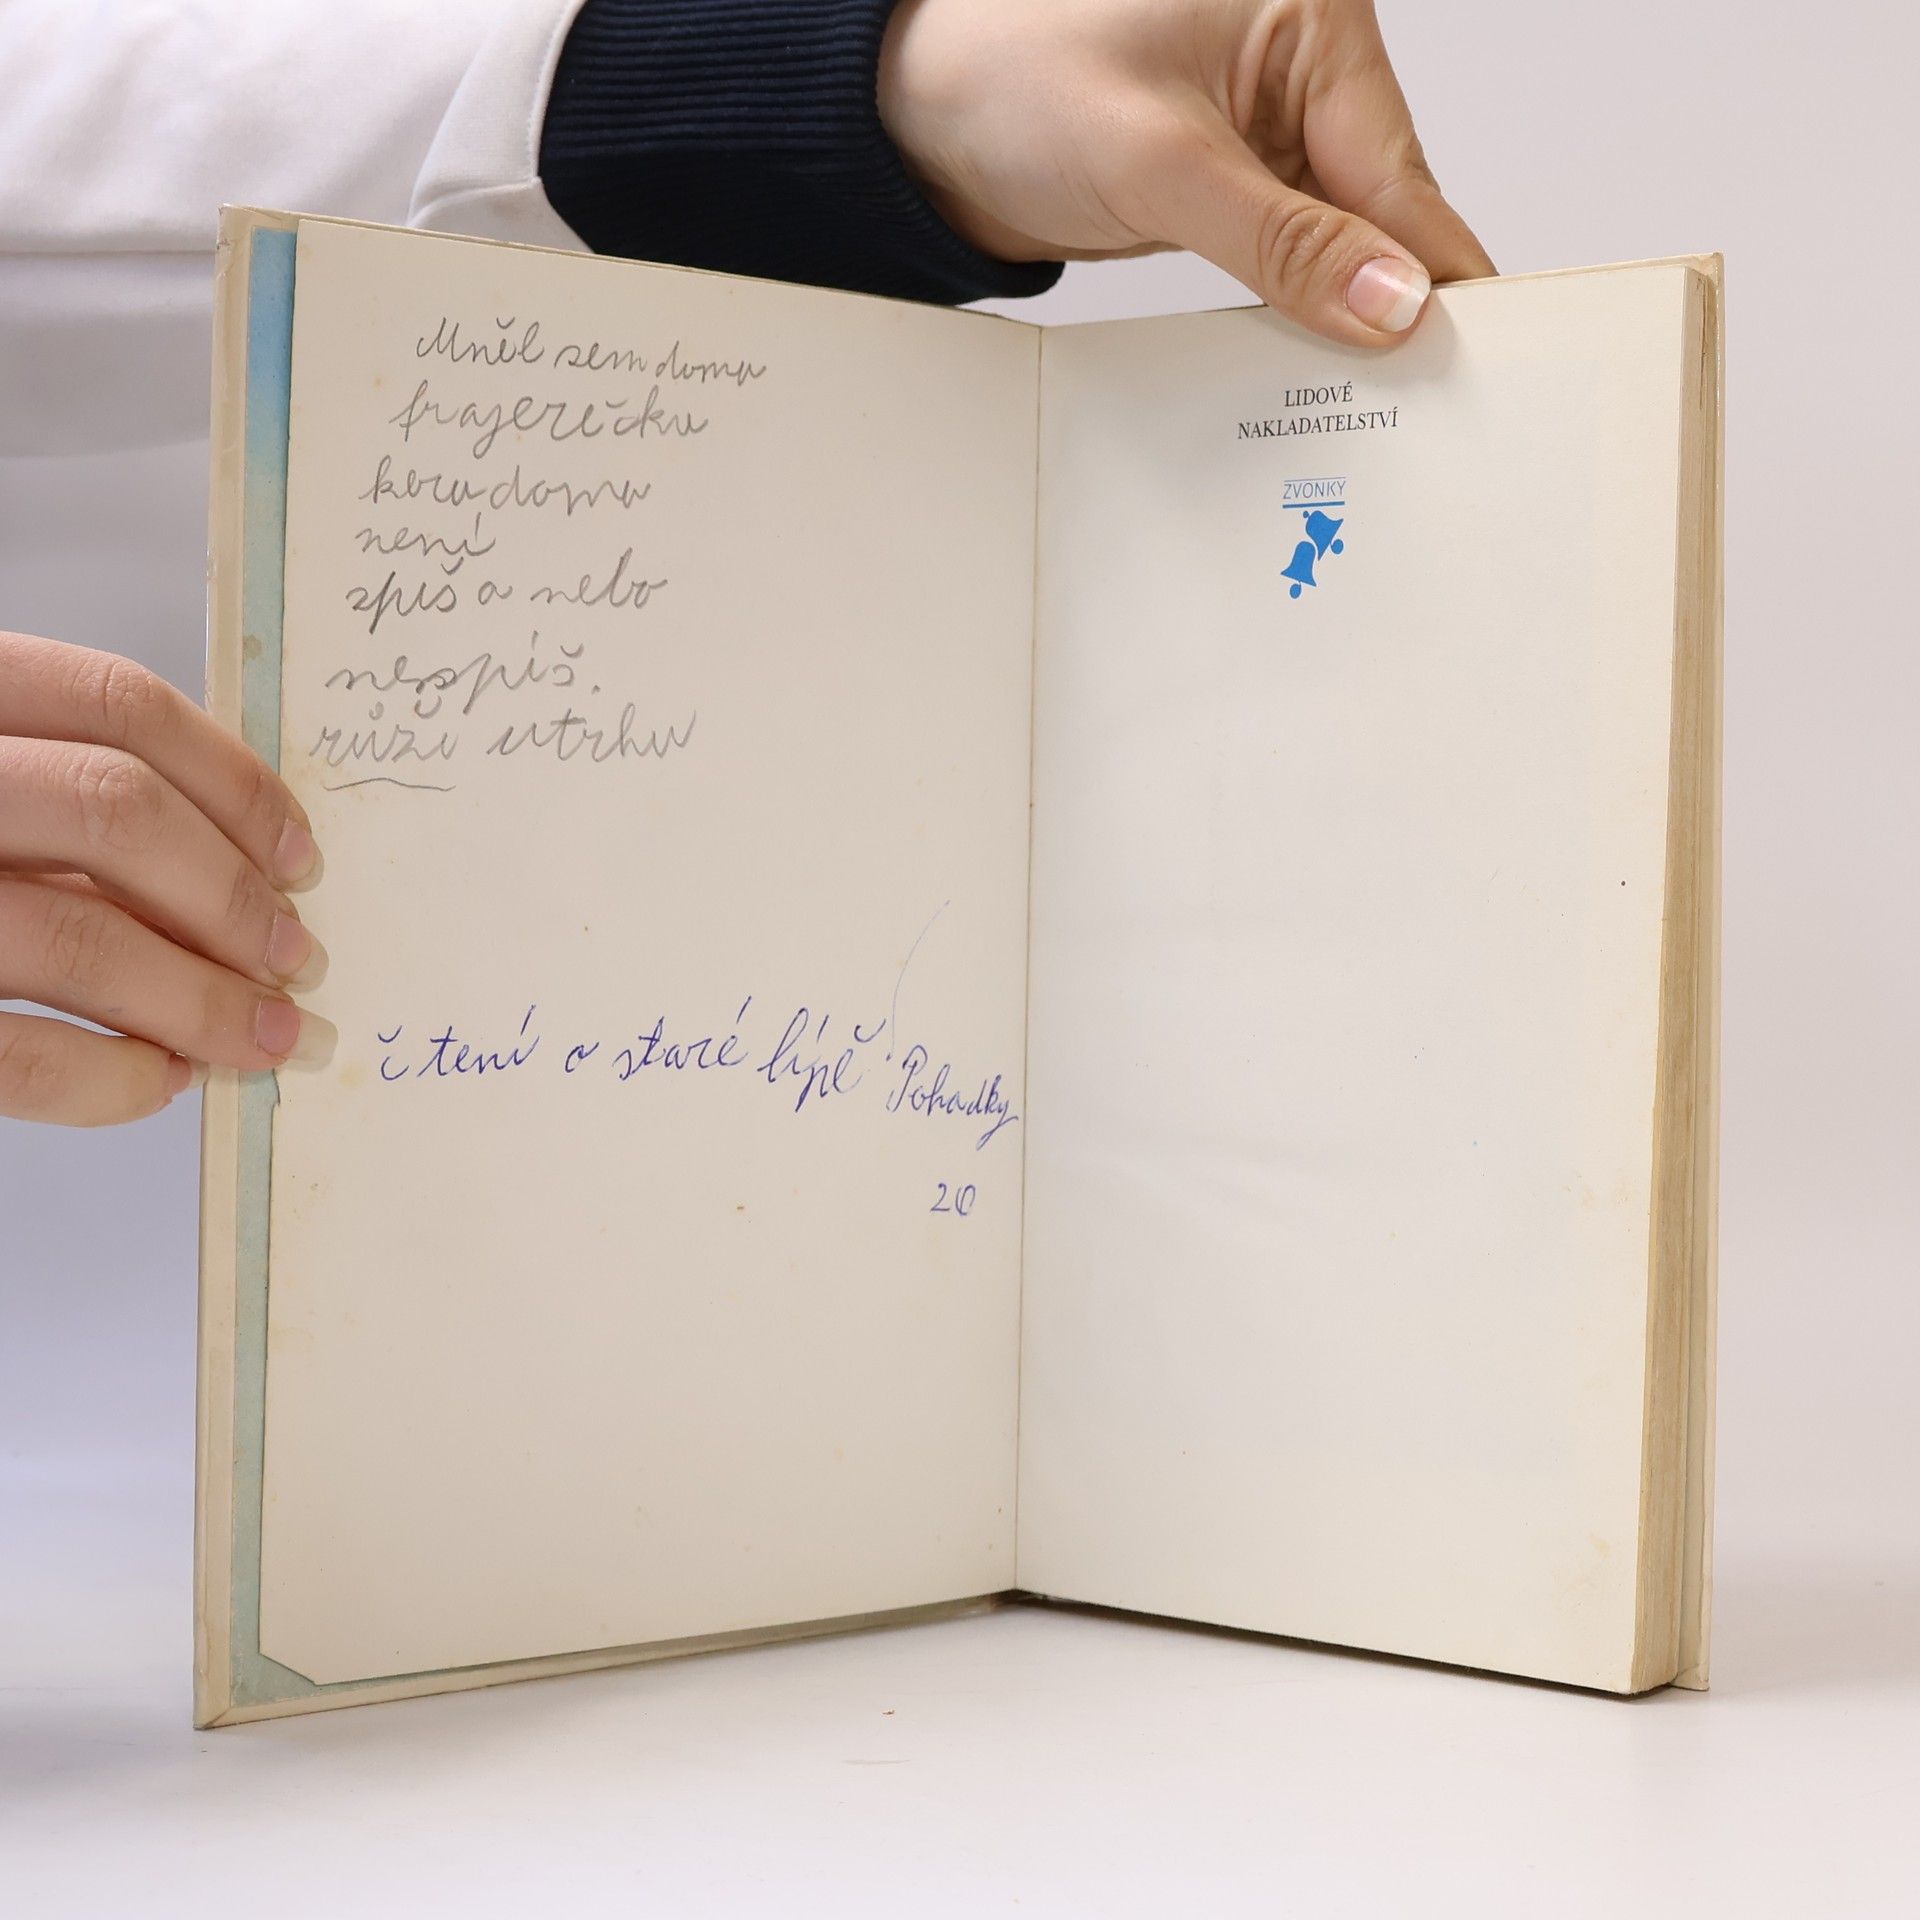 Mněl sem doma
frajerečku
kera doma
není
spíš a nebo
nespíš.
růži utrhu
čtení o staré lípě
Pohadky
20
LIDOVÉ
NAKLADATELSTVÍ
ZVONKY